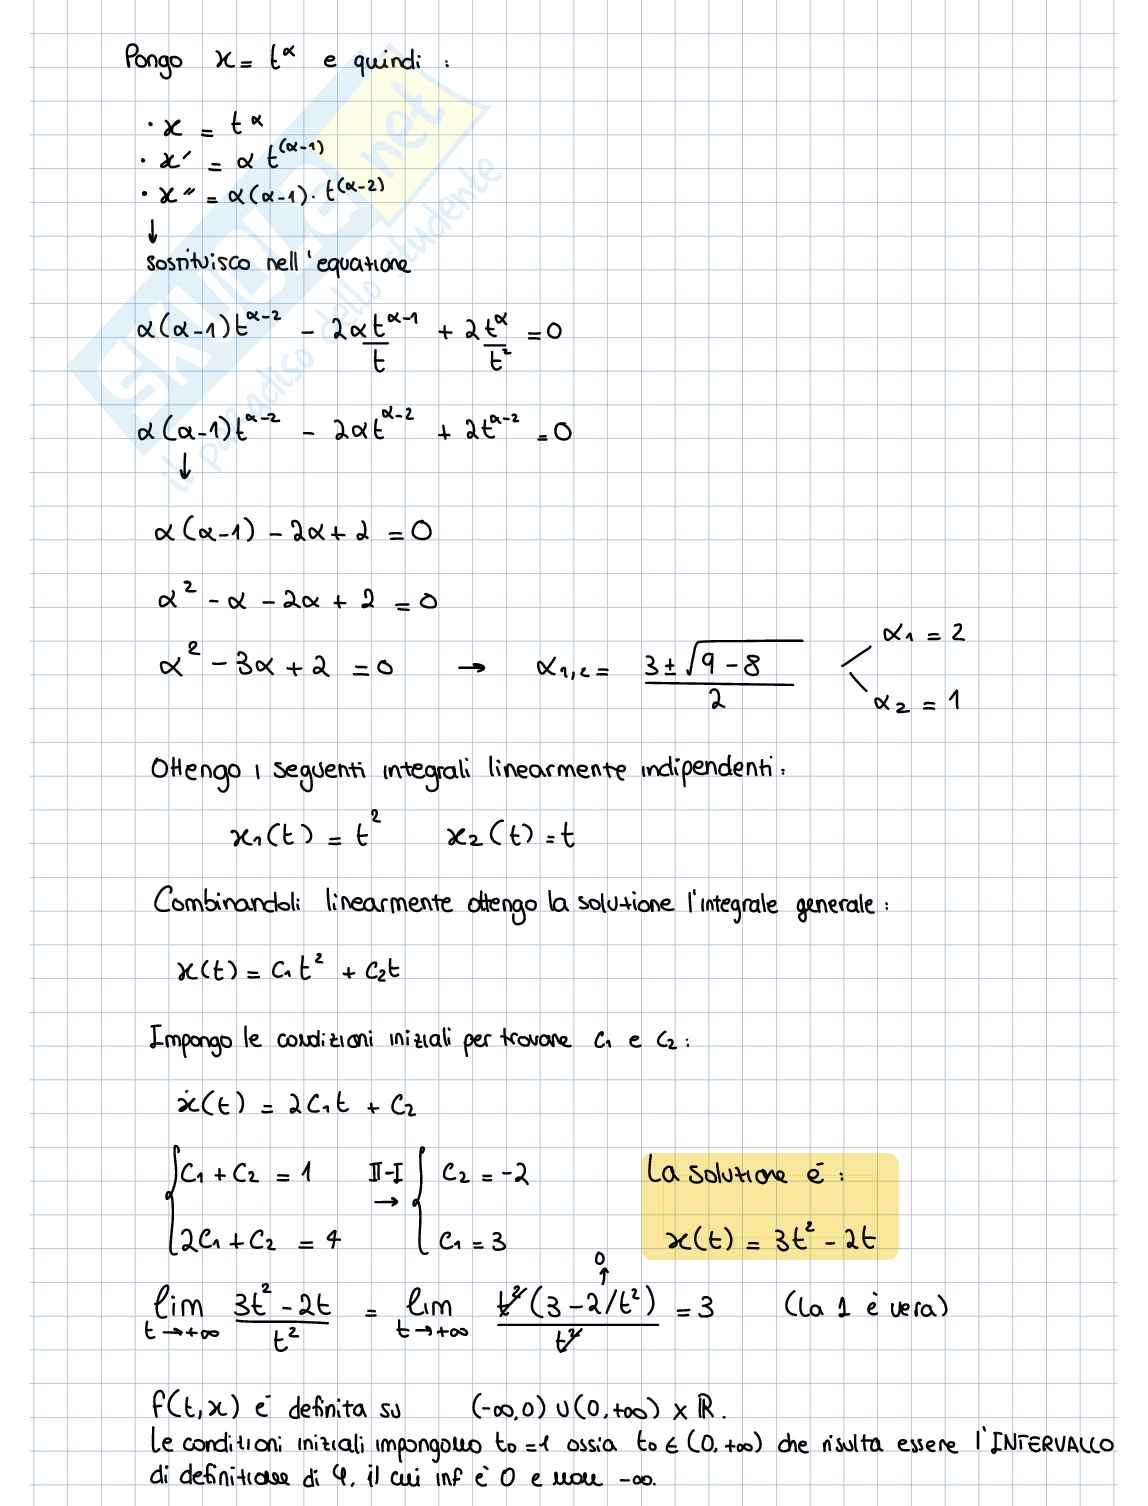 Pongo x = t^α e quindi :
· x = t^α
· x' = α t^(α-1)
· x'' = α(α-1) · t^(α-2)
↓
sostituisco nell'equazione
α(α-1)t^(α-2) - 2αt^(α-1)/t + 2t^α/t² = 0
α(α-1)t^(α-2) - 2αt^(α-2) + 2t^(α-2) = 0
↓
α(α-1) - 2α + 2 = 0
α² - α - 2α + 2 = 0
α² - 3α + 2 = 0 → α₁,₂ = (3 ± √(9 - 8))/2 α₁ = 2 α₂ = 1
Ottengo i seguenti integrali linearmente indipendenti:
x₁(t) = t² x₂(t) = t
Combinandoli linearmente ottengo la soluzione l'integrale generale:
x(t) = C₁t² + C₂t
Impongo le condizioni iniziali per trovare C₁ e C₂:
ẋ(t) = 2C₁t + C₂
{ C₁ + C₂ = 1 II-I → { C₂ = -2 La soluzione è :
2C₁ + C₂ = 4 C₁ = 3 x(t) = 3t² - 2t
lim t→+∞ (3t² - 2t)/t² = lim t→+∞ t²(3 - 2/t²)/t² = 3 (la 1 è vera)
0 ↑
f(t,x) è definita su (-∞,0) ∪ (0,+∞) × ℝ.
Le condizioni iniziali impongono t₀ = 1 ossia t₀ ∈ (0,+∞) che risulta essere l'INTERVALLO
di definizione di φ, il cui inf è 0 e non -∞.
SKUOLA.net
il paradiso dello studente